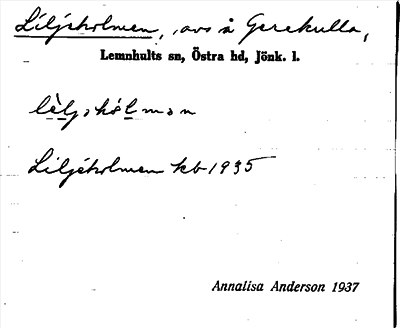 Liljeholmen, avs å Gerekulla,
Lemnhults sn, Östra hd, Jönk. l.
Liljeholmen kb 1935
Annalisa Anderson 1937